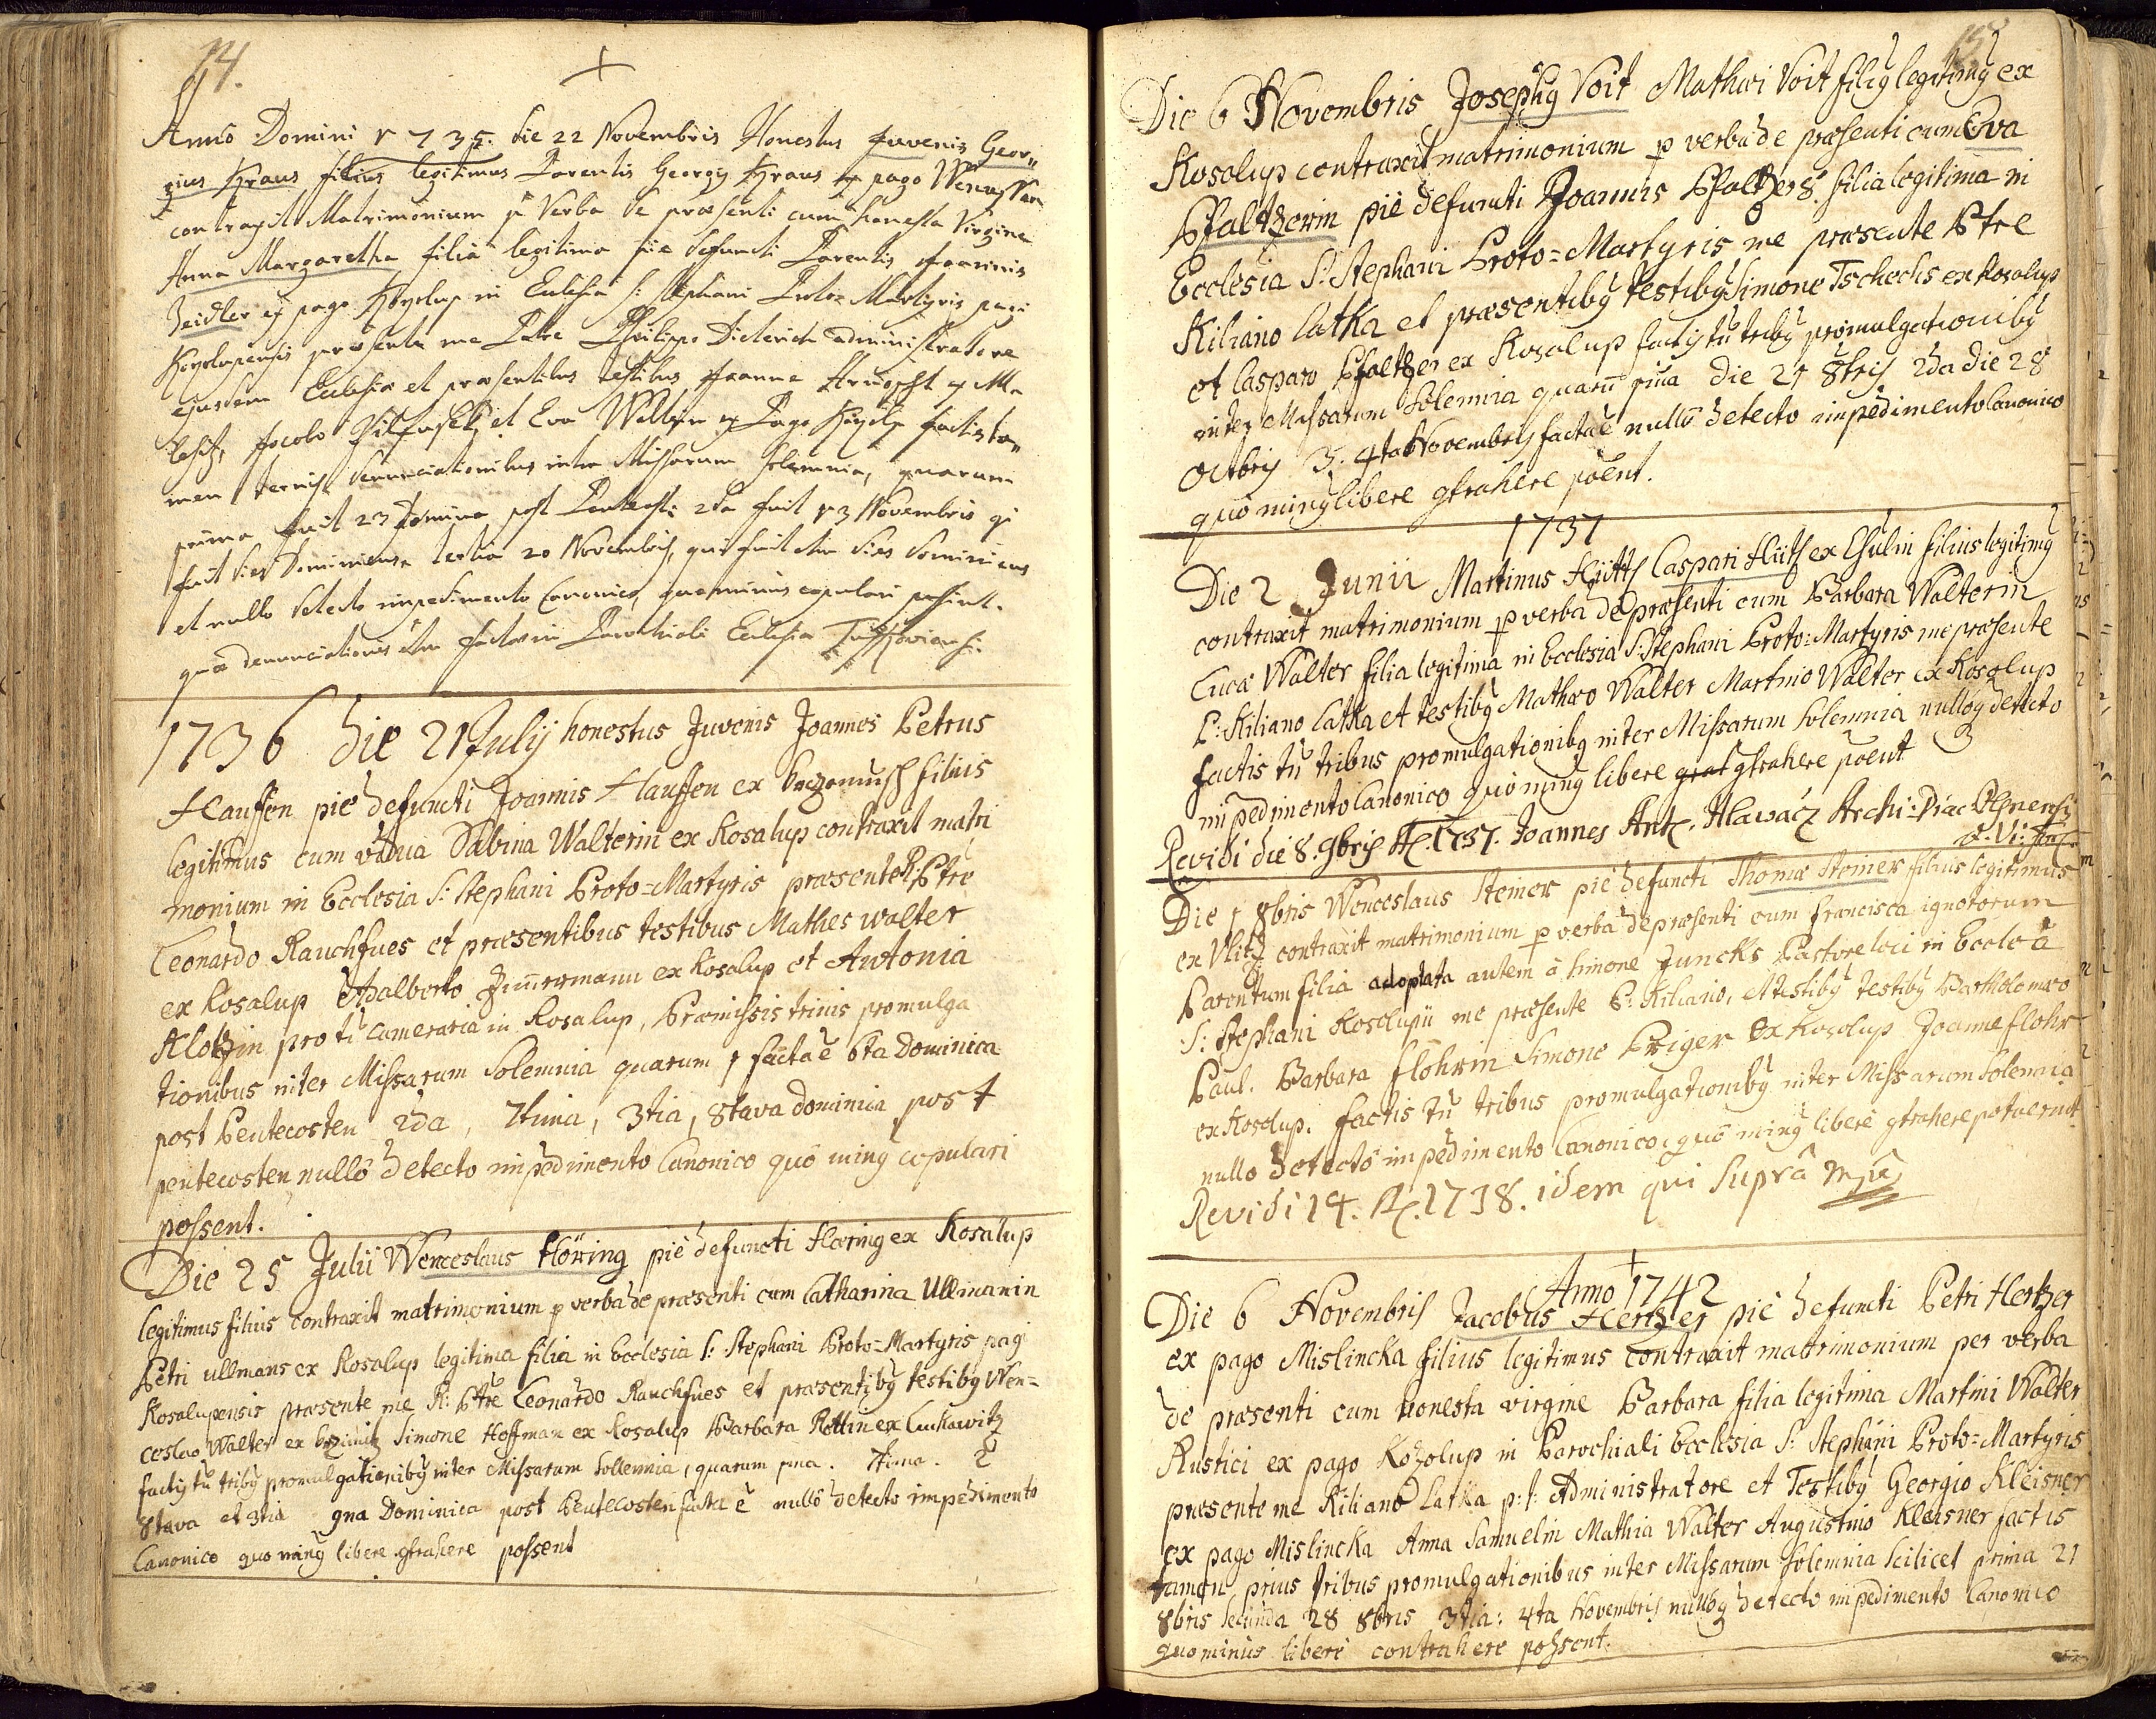 14.
Anno Domini 1735. die 22 Novembris Honestus Juvenis Geor„
gius Kraus filius legitimus Parentis Georgij Kraus ex pago
contraxit Matrimonium p Verba de præsenti cum honesta Virgine
Anna Margaretha filia legitima pie defuncti Parentis Joannis
Zeidler ex pago Kozolup in Ecclesia S: Stephani Proto Martyris pagi
Kozolupensis præsente me Patre Philippo Dieterich administratore
ejusdem Ecclesiæ et præsentibus testibus Joanne
Jacobo et Eva ex Pago factis ta„
men ternis denunciationibus inter Missarum solemnia, quarum
prima fuit 23 Domina post Pentecost: 2da fuit 13 Novembris qi
fuit dies Dominicus tertia 20 Novembris, qui fuit etm dies Dominicus
et nullo detecto impedimento Canonico, quominus copulari possint.
quæ denunciationes etm factæ in Parochiali Ecclesia
1736 die 21 Julij honestus Juvenis Joannes Petrus
Hauffen pie defuncti Joannis Hauffen ex filius
legitimus cum vidua Sabina Walterin ex Kosalup contraxit matri
monium in Ecclesia S: Stephani Proto=Martyris præsente R: Ptre
Leonardo Rauchfues et præsentibus testibus Mathes walter
ex Kosalup Adalberto Zimermann ex Kosalup et Antonia
Klotzin pro tu cameraria in Kosalup, Præmissis trinis promulga
tionibus inter Missarum Solemnia quarum 1 facta e 6ta Dominica
post Pentecosten 2da, 7tima, 3tia, 8tava dominica post
pentecosten, nullo detecto impedimento Canonico quo ming copulari
possent.
Die 25 Julii Wenceslaus Höring pie defuncti Hæring ex Kosalup
legitimus filius contraxit matrimonium p verba de præsenti cum Catharina Ullmanin
Petri ullmans ex Kosalup legitima filia in Ecclesia S: Stephani Proto=Martyris pagi
Kosalupensis præsente me R: Ptre Leonardo Rauchfues et præsentibg testibg Wen=
ceslao Walter ex Simone Hoffman ex Kosalup Barbara Rottin ex Luckawitz
factis tu tribg promulgationibg inter Missarum Sollemnia, quarum pma. 7tima. 2
8tava et 3tia 9na Dominica post Pentecosten facta e nullo detecto impedimento
Canonico quo ming libere gtrahere possent
15
Die 6 Novembris Josephg Voit Mathæi Voit filig legitimg ex
Kosolup contraxit matrimonium p verba de præsenti cum Eva
Pfaltzerin pie defuncti Joannis Pfaltzers filia legitima in
Ecclesia S: Stephani Proto=Martyris me præsente Ptre
Kiliano Latka et præsentibg testibg Simone Tschechs ex Kosalup
et Casparo Pfaltzer ex Kosalup factis tu tribg promulgationibg
inter Missarum Solemnia quaru pma die 21 8bris 2da die 28
Octbris 3. 4ta Novembris facta e nullo detecto impedimento Canonico
quo ming libere gtrahere poent.
1737
Die 2 Junii Martinus Hütts Caspari Hüts ex filius legitimg
contraxit matrimonium p verba de præsenti cum Barbara Walterin
Lucæ Walter filia legitima in Ecclesia S: Stephani Proto=Martyris me præsente
P: Kiliano Latka et testibg Mathæo Walter Martino Walter ex Kosolup
factis tu tribus promulgationibg inter Missarum Solemnia nulloq detecto
impedimento Canonico quo ming libere gtrahere poent
Revidi die 8. 9bris 1737. Joannes Ant. Hlawacz Archi-Diac Plsnensis
Die 1 8bris Wenceslaus Steiner pie defuncti Thomæ Steiner filius legitimus
ex Vlitz contraxit matrimonium p verba de præsenti cum Francisca ignotorum
Parentum filia adoptata autem a Simone Juncks Pastore loci in Eccla
S: Stephani Kosolupii me præsente P: Kiliano, et testibg testibg Bartholomæo
Paul. Barbara Flohrin Simone Priger ex Kosolup Joanne Flohr
ex Kosolup. factis tu tribus promulgationibg inter Missarum Solemnia
nullo detecto impedimento Canonico, quo ming libere gtrahere potuerunt
Revidi 14. 1738. idem qui Supra mp
Anno 1742
Die 6 Novembris Jacobus Hertzer pie defuncti Petri Hertzer
ex pago Mislincka filius legitimus contraxit matrimonium per verba
de præsenti cum honesta virgine Barbara filia legitima Martini Walter
Rustici ex pago Kozolup in Parochiali Ecclesia S: Stephani Proto=Martyris
præsente me Kiliano Latka p:t: Administratore et Testibg Georgio Kleisner
ex pago Mislincka Anna Samuelin Mathia Walter Augustino Kleisner factis
tamen prius tribus promulgationibus inter Missarum Solemnia scilicet prima 21
8bris secunda 28 8bris 3tia: 4ta Novembris nulloq detecto impedimento Canonico
quominus libere contrahere possent.